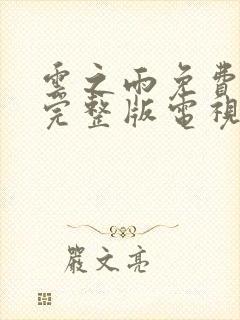 雲之雨免費
完整版電視
嚴文亮